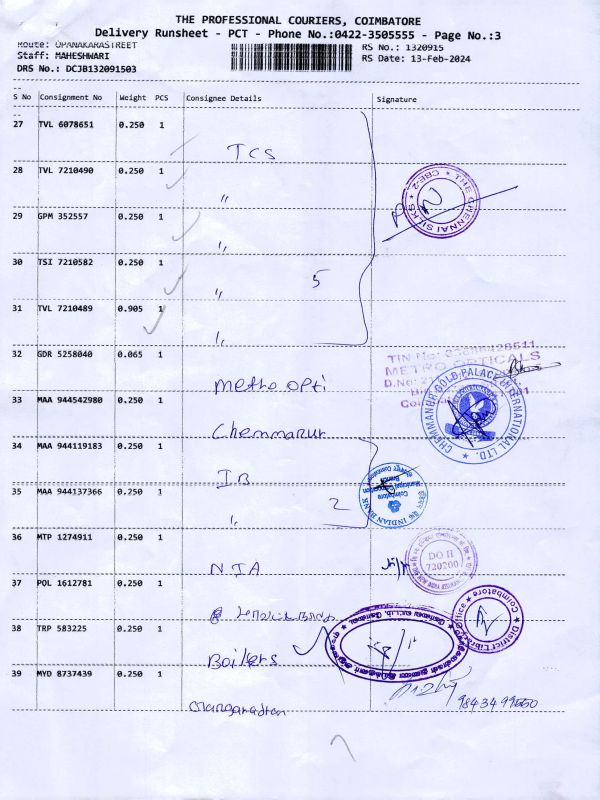 THE PROFESSIONAL COURIERS, COIMBATORE
Delivery Runsheet - PCT - Phone No.:0422-3505555 - Page No.:3
Route: OPANAKARASTREET
RS No.: 1320915
Staff: MAHESHWARI
RS Date: 13-Feb-2024
DRS No.: DCJB132091503
S No Consignment No Weight PCS Consignee Details Signature
27 TVL 6078651 0.250 1
TCS
28 TVL 7210490 0.250 1
"
THE CHENNAI SILKS
CBE-2
29 GPM 352557 0.250 1
"
30 TSI 7210582 0.250 1
" 5
31 TVL 7210489 0.905 1
"
32 GDR 5258040 0.065 1
TIN No:
METRO OPTICALS
D.No:
Metho opti
33 MAA 944542980 0.250 1
CHEMMANUR GOLD PALACE INTERNATIONAL LTD.
Chemmanur
34 MAA 944119183 0.250 1
IB
35 MAA 944137366 0.250 1
" 2
INDIAN BANK
Coimbatore
Branch
36 MTP 1274911 0.250 1
NIA
DO II
720200
37 POL 1612781 0.250 1
District Library Office
Coimbatore
38 TRP 583225 0.250 1
Boilers
39 MYD 8737439 0.250 1
9843499550